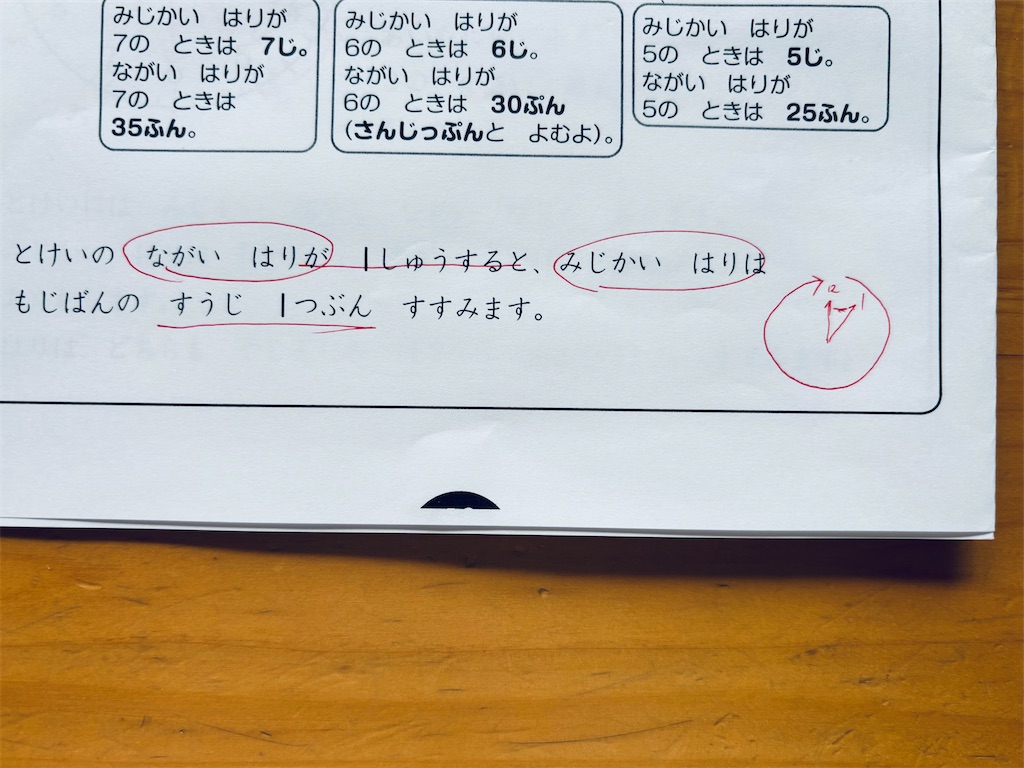 みじかい　はりが
7の　ときは　7じ。
ながい　はりが
7の　ときは
35ふん。
みじかい　はりが
6の　ときは　6じ。
ながい　はりが
6の　ときは　30ぷん
(さんじっぷんと　よむよ)。
みじかい　はりが
5の　ときは　5じ。
ながい　はりが
5の　ときは　25ふん。
とけいの　ながい　はりが　1しゅうすると、みじかい　はりは
もじばんの　すうじ　1つぶん　すすみます。
12
1